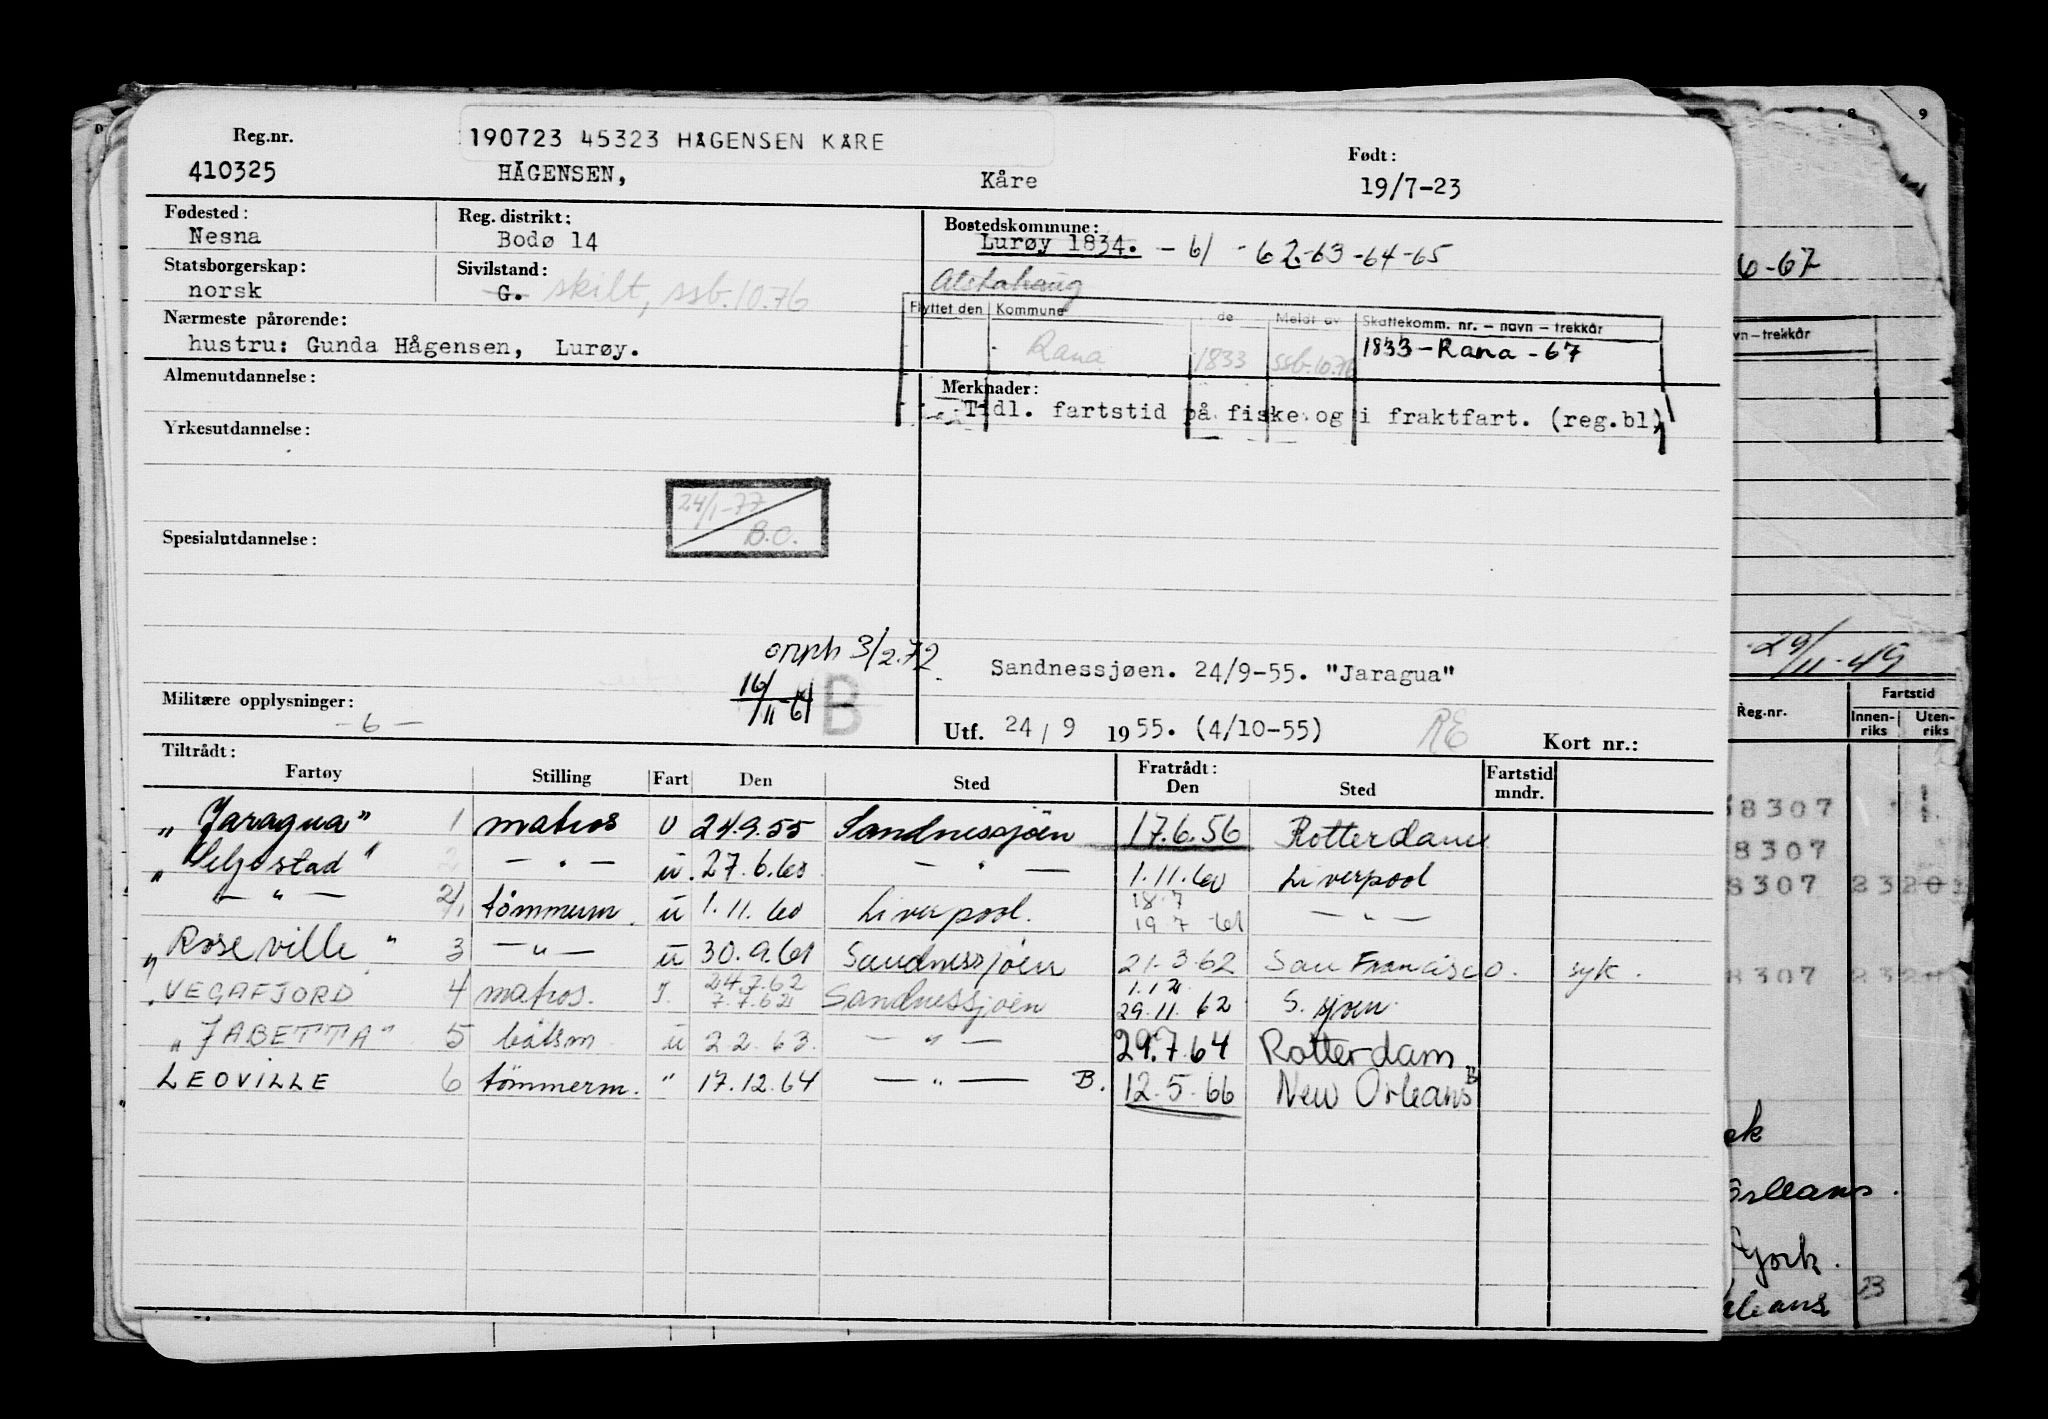 Reg.nr. 190723 45323 HÅGENSEN KÅRE Født:
410325 HÅGENSEN, Kåre 19/7-23
Fødested: Reg. distrikt: Bostedskommune:
Nesna Bodø 14 Lurøy 1834. - 61 - 62-63-64-65
Statsborgerskap: Sivilstand: Alstahaug
norsk G. skilt, ssb.10.76
Flyttet den Kommune Meldt av Skattekomm. nr. – navn – trekkår
Nærmeste pårørende: Rana 1833 ssb.10.76 1833-Rana-67
hustru: Gunda Hågensen, Lurøy.
Almenutdannelse: Merknader:
Tidl. fartstid på fiske og i fraktfart. (reg.bl)
Yrkesutdannelse:
24/1-77
B.O.
Spesialutdannelse:
3/2.72
Sandnessjøen. 24/9-55. "Jaragua"
16/11-61 B
Militære opplysninger: - 6 -
Utf. 24/9 1955. (4/10-55) RE Kort nr.:
Tiltrådt: Fratrådt:
Fartøy Stilling Fart Den Sted Den Sted Fartstid mndr.
"Jaragua" 1 matros U 24.9.55 Sandnessjöen 17.6.56 Rotterdam
"Seljestad" 2 — " — u. 27.6.60 — " — 1.11.60 Liverpool
— " — 2/1 tömmerm. u 1.11.60 Liverpool. 18.7 19.7 61 — " —
"Roseville" 3 — " — u 30.9.61 Sandnessjöen 21.3.62 San Francisco. syk.
"VEGAFJORD 4 matros. I. 24.7.62 7.7.62 Sandnessjöen 1.12 29.11.62 S. sjøen
"JABETTA" 5 båtsm u 2.2.63. — " — 29.7.64 Rotterdam
LEOVILLE 6 tömmerm. " 17.12.64 — " — B. 12.5.66 New Orleans B
9
6-67
vn – trekkår
29/11-49
Reg.nr. Fartstid
Innen-riks Uten-riks
8307
8307
8307 2320
8307 232
Orleans.
York.
leans B